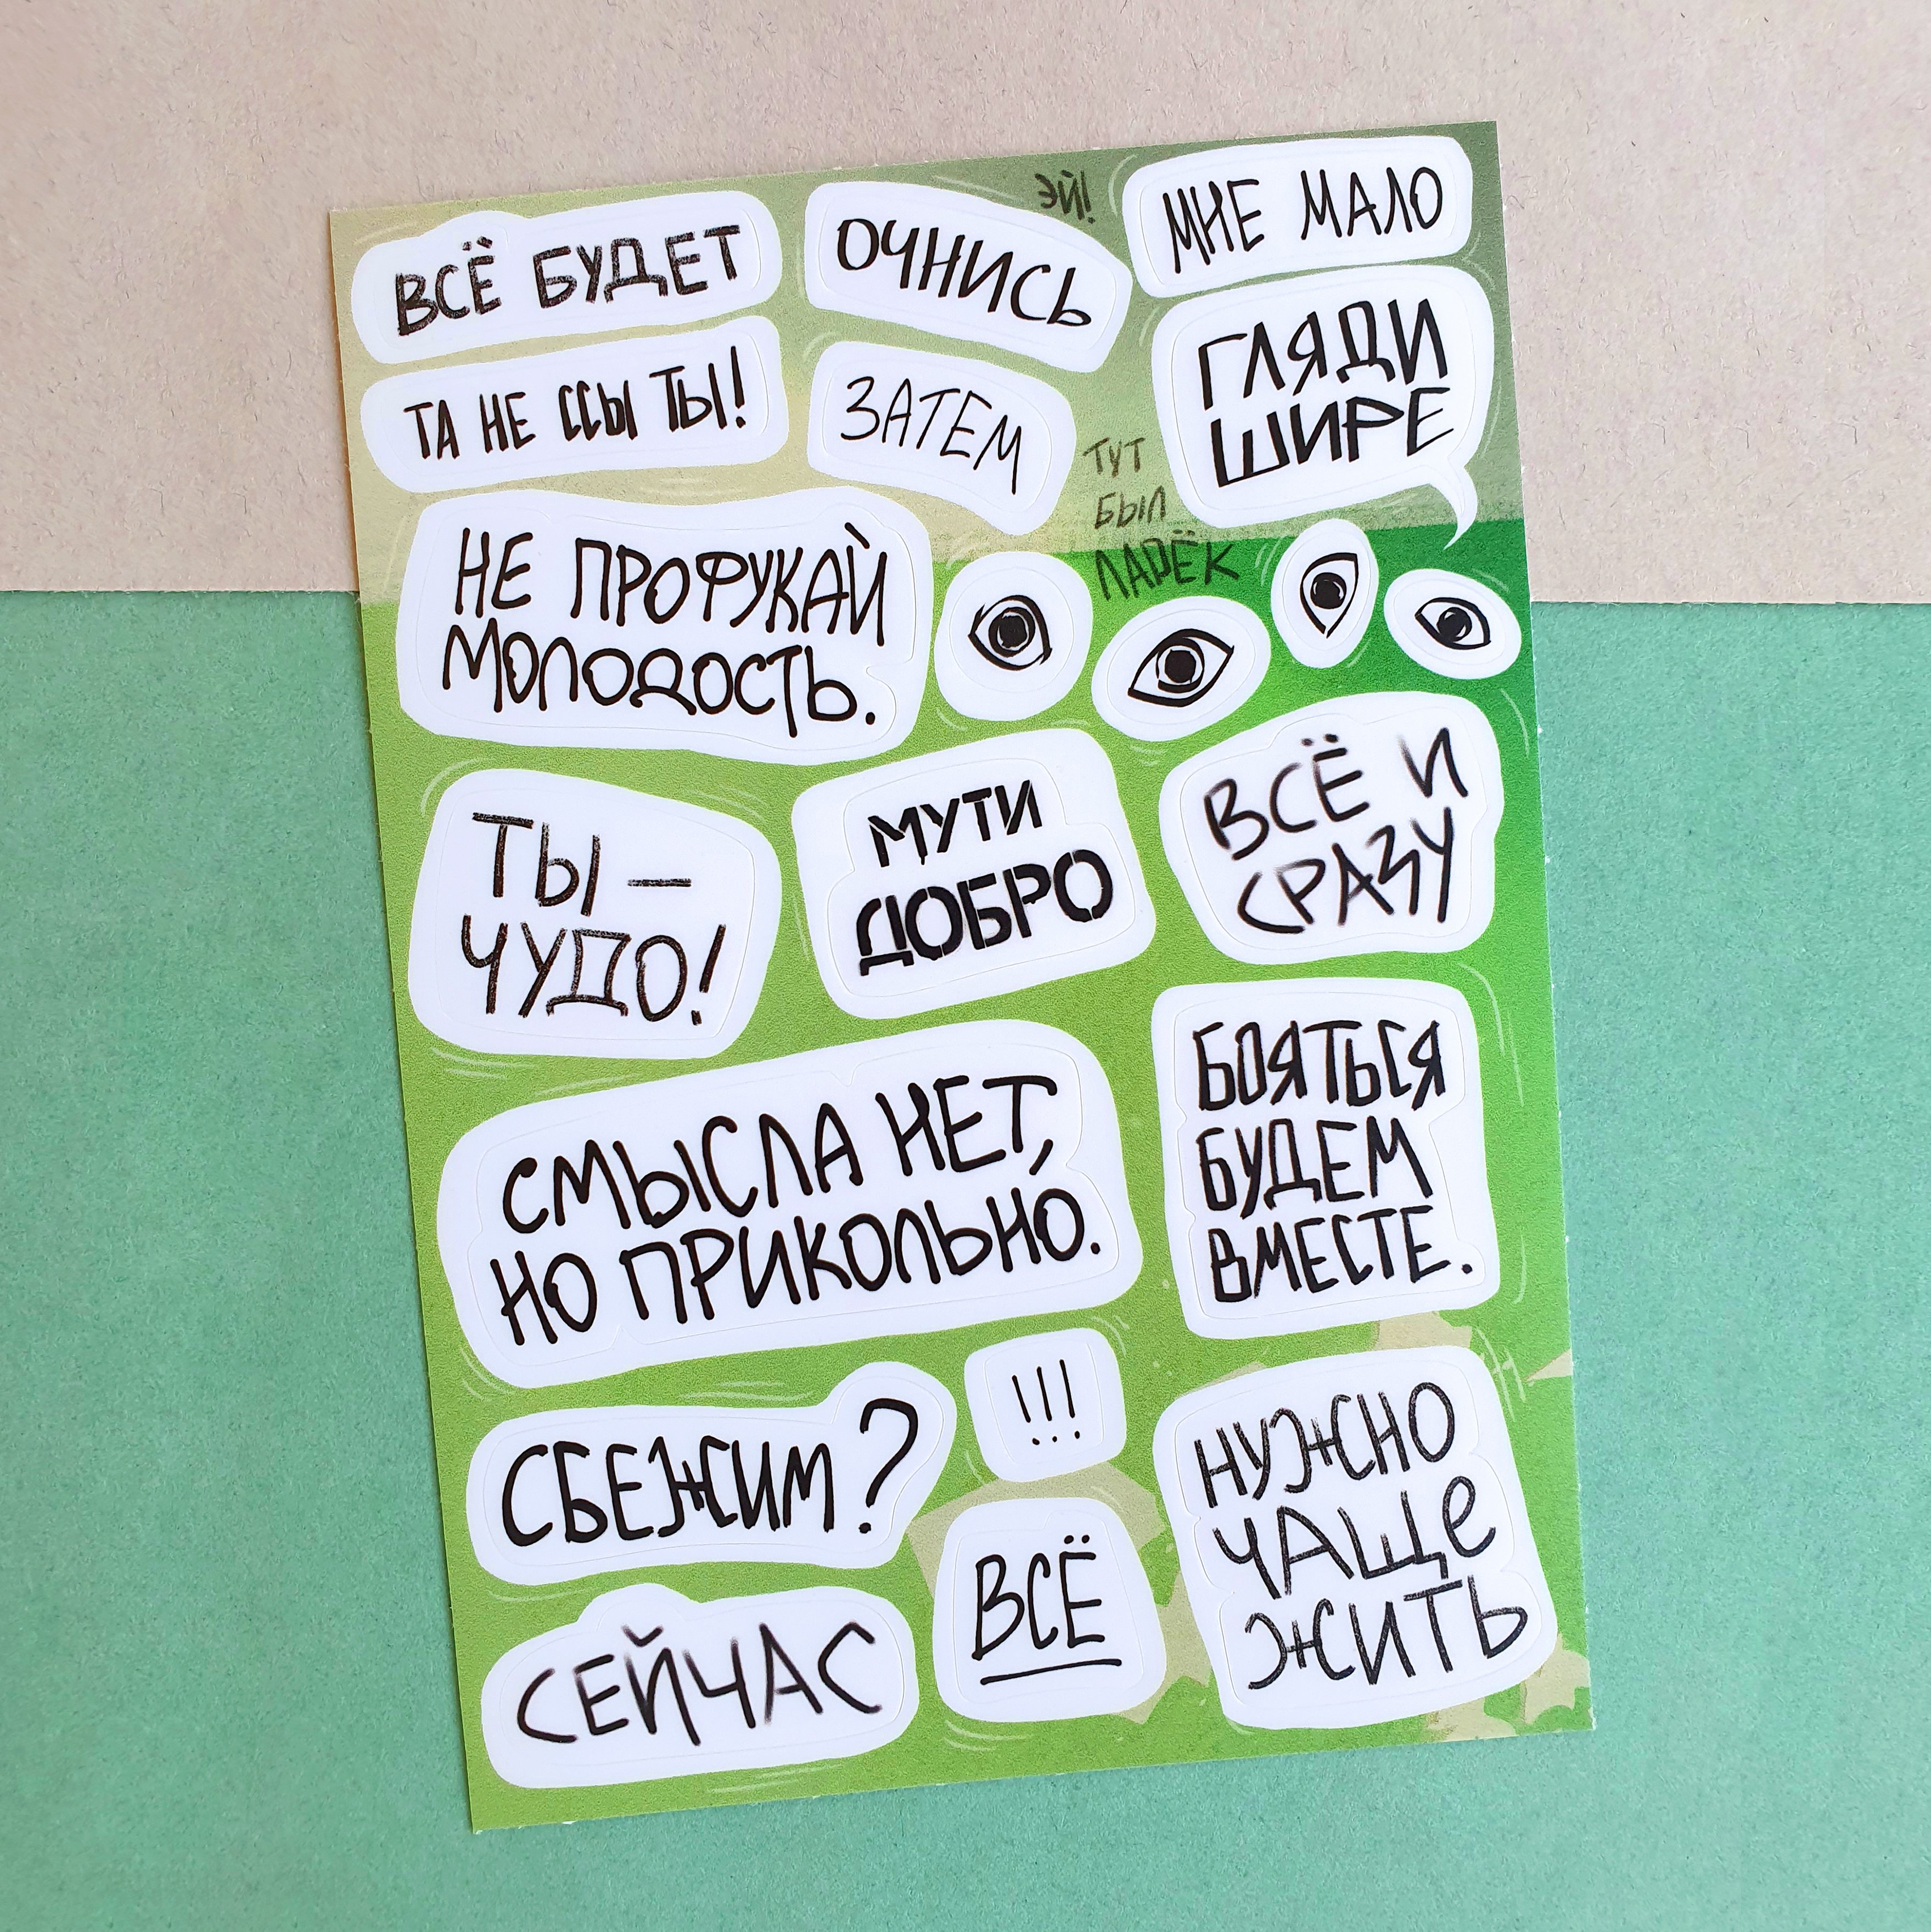 ВСЁ БУДЕТ
ОЧНИСЬ
ЭЙ!
МНЕ МАЛО
ТА НЕ ССЫ ТЫ!
ЗАТЕМ
ГЛЯДИ
ШИРЕ
ТУТ
БЫЛ
ЛАРЁК
НЕ ПРОФУКАЙ
МОЛОДОСТЬ.
ТЫ –
ЧУДО!
МУТИ
ДОБРО
ВСЁ И
СРАЗУ
СМЫСЛА НЕТ,
НО ПРИКОЛЬНО.
БОЯТЬСЯ
БУДЕМ
ВМЕСТЕ.
СБЕЖИМ?
!!!
НУЖНО
ЧАЩЕ
ЖИТЬ
СЕЙЧАС
ВСЁ